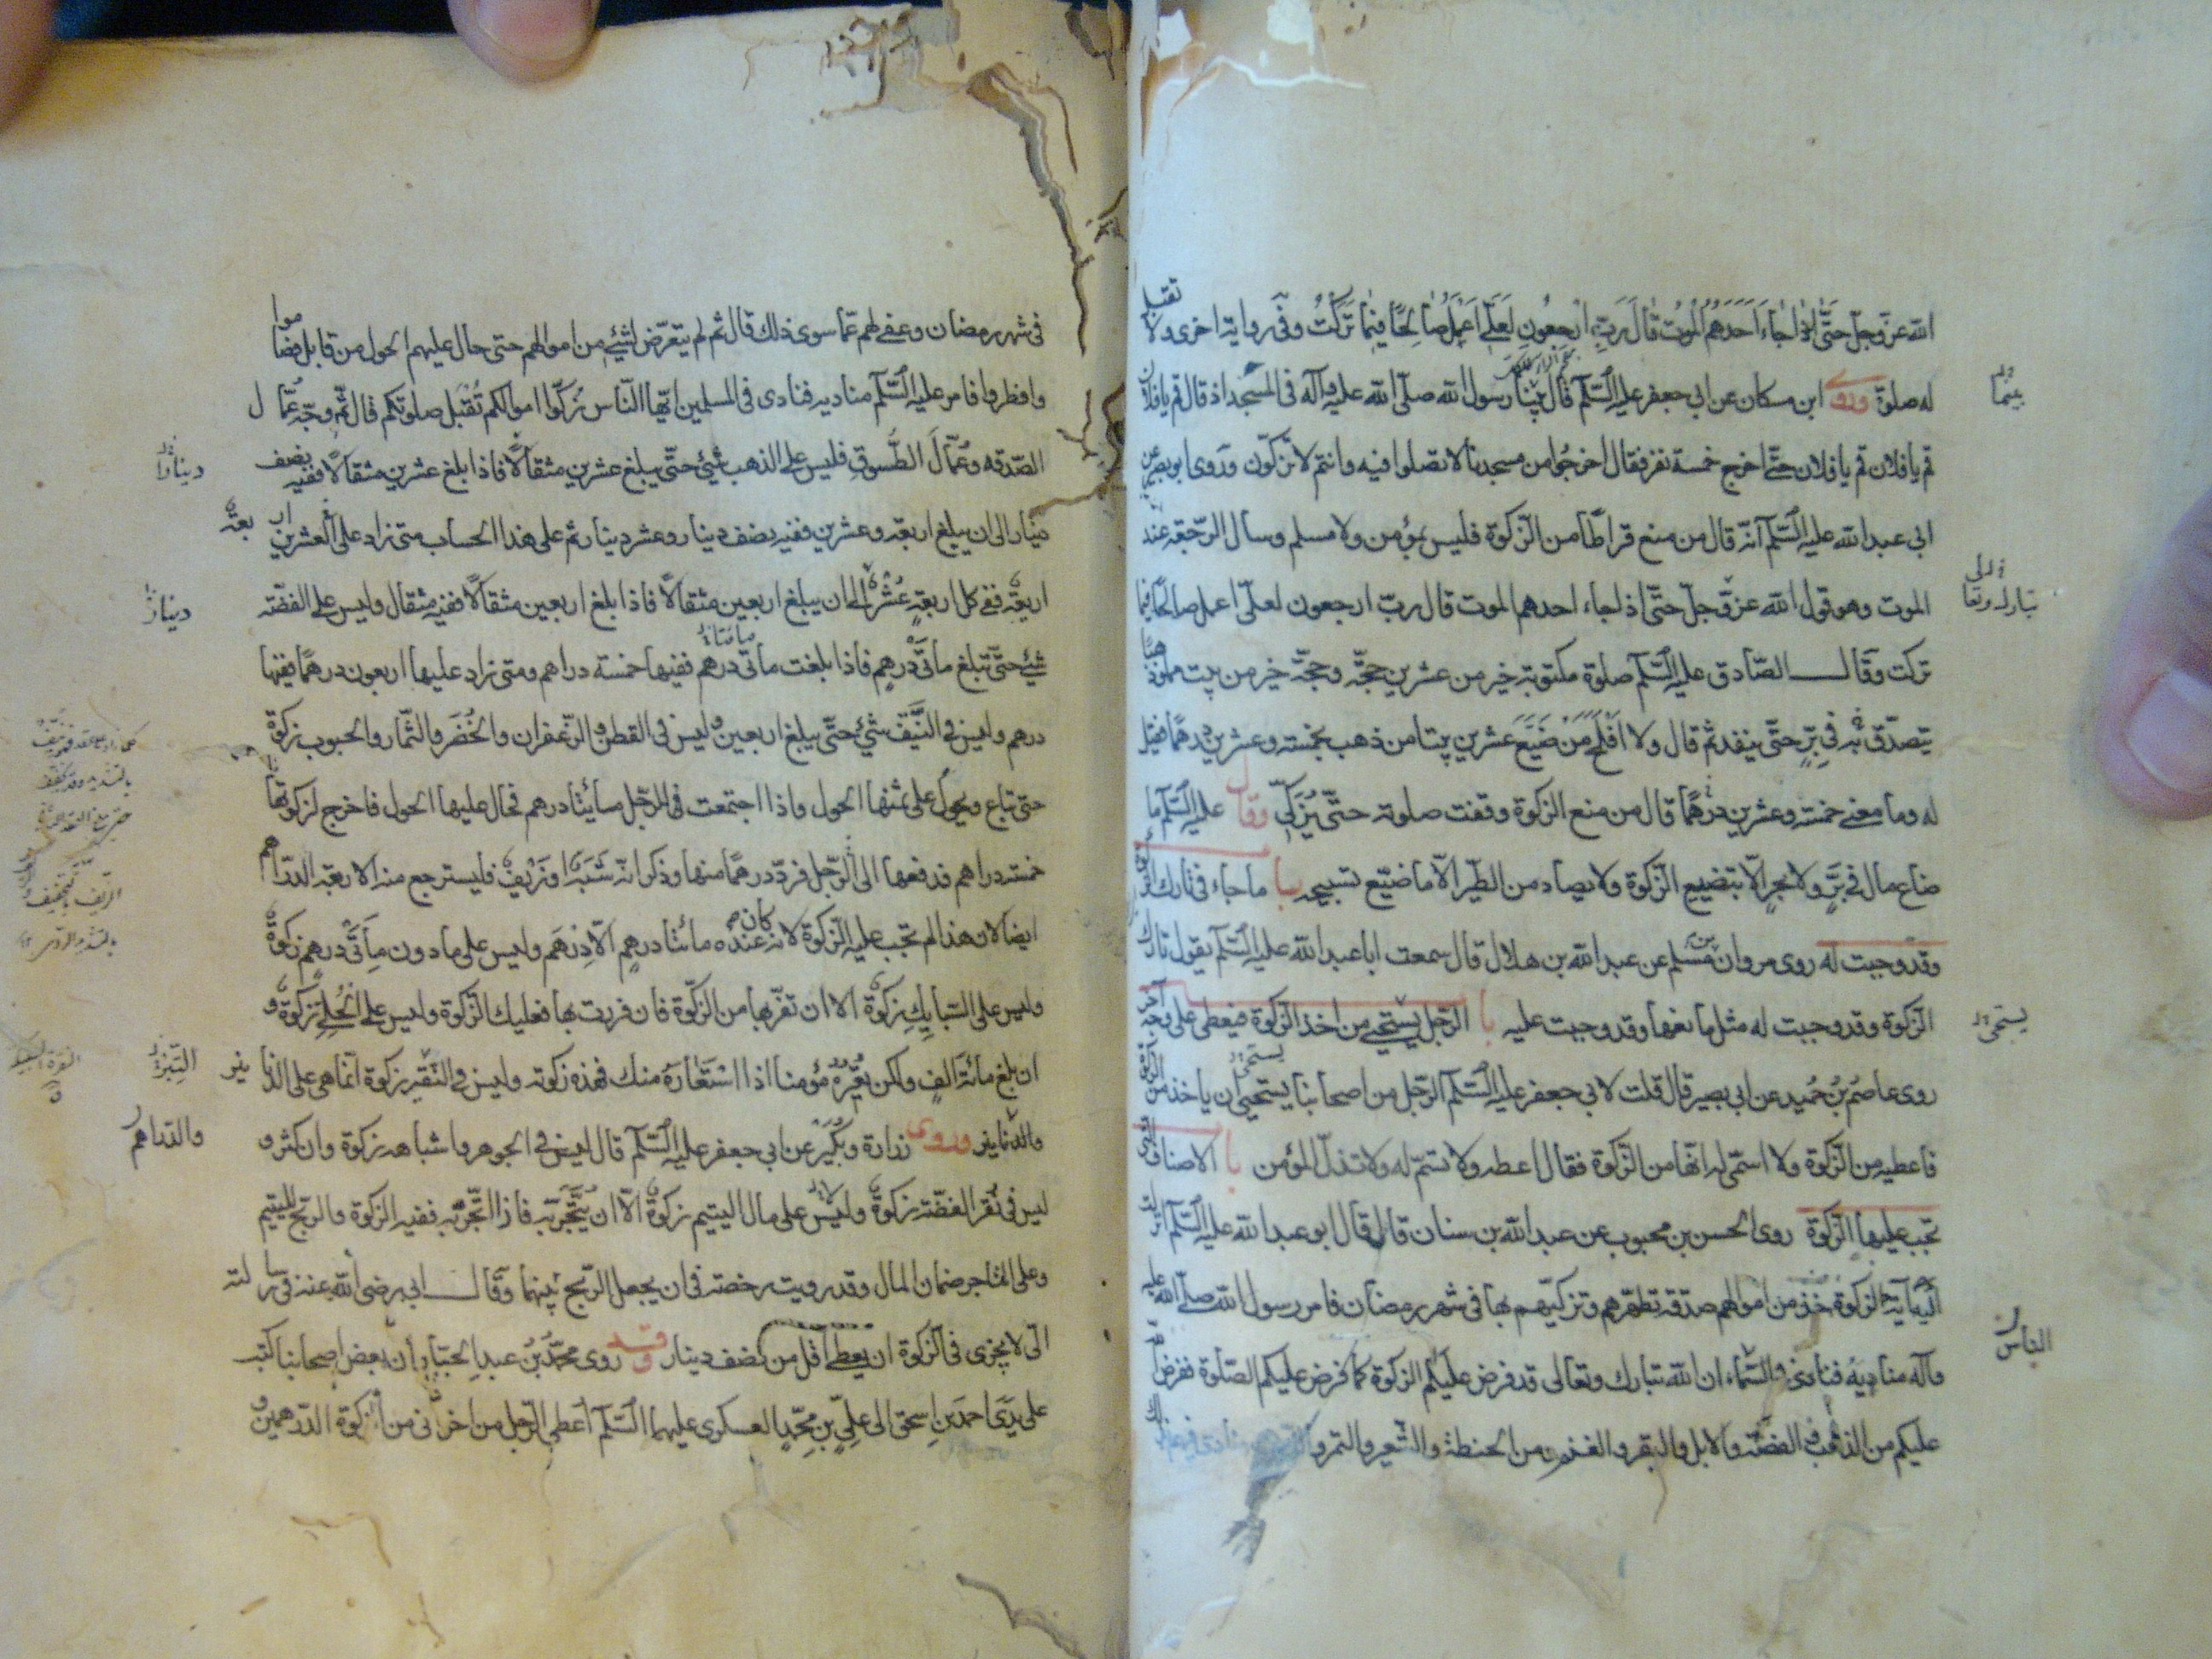 الله عزّ وجلّ حَتّى اِذا جاءَ اَحَدَهُمُ المَوْتُ قالَ رَبِّ ارْجِعُونِ لَعَلّى اَعْمَلُ صالِحًا فيما تَرَكْتُ وفى رواية اخرى ولا تقبل
له صلوة وروى ابن مسكان عن ابى جعفر عليه السّلم قال بينا رسول الله صلّى الله عليه وآله فى المسجد اذ قال قم يا فلان
بينما
قم يا فلان قم يا فلان حتّى اخرج خمسة نفر فقال اخرجوا من مسجدنا لا تصلوا فيه وانتم لا تزكّون وروى ابو بصير عن
ابى عبد الله عليه السّلم انّه قال من منع قراطًا من الزّكوة فليس بمؤمن ولا مسلم وسال الرّجعة عند
الموت وهو قول الله عزّ وجلّ حتّى اذا جاء احدهم الموت قال ربّ ارجعون لعلّى اعمل صالحًا فيما
تبارك وتعالى
تركت وقال الصّادق عليه السّلم صلوة مكتوبة خير من عشرين حجّة وحجّة خير من بيت مملوّ ذهبًا
يتصدّق به فى برّ حتّى ينفد ثمّ قال ولا افلح من ضيّع عشرين بيتا من ذهب بخمسة وعشرين درهمًا فقيل
له وما معنى خمسة وعشرين درهمًا قال من منع الزكوة وقفت صلوته حتّى يزكّى وقال عليه السّلم ما
ضاع مال فى برّ ولا بحر الّا بتضييع الزّكوة ولا يصاد من الطّير الّا ما ضيّع تسبيحه باب ما جاء فى تارك الزكوة
وقد وجبت له روى مروان بن مسلم عن عبد الله بن هلال قال سمعت ابا عبد الله عليه السّلم يقول تارك
الزّكوة وقد وجبت له مثل مانعها وقد وجبت عليه باب الرّجل يستحيى من اخذ الزكوة فيعطى على وجه آخر
يستحى
روى عاصم بن حُميد عن ابى بصير قال قلت لابى جعفر عليه السّلم الرّجل من اصحابنا يستحيى ان ياخذ من الزّكوة
فاعطيه من الزّكوة ولا اسمّى له انّها من الزّكوة فقال اعطه ولا تسمّ له ولا تذلّ المؤمن باب الاصناف التى
تجب عليها الزّكوة روى الحسن بن محبوب عن عبد الله بن سنان قال قال ابو عبد الله عليه السّلم انزلت
اليه آية الزكوة خذ من اموالهم صدقة تطهّرهم وتزكّيهم بها فى شهر رمضان فامر رسول الله صلّى الله عليه
وآله مناديه فنادى فى السّماء ان الله تبارك وتعالى قد فرض عليكم الزكوة كما فرض عليكم الصّلوة ففرض
الناس
عليكم من الذهب والفضّة والابل والبقر والغنم ومن الحنطة والشّعير والتمر و
فى شهر رمضان وعفى لهم عمّا سوى ذلك قال ثم لم يتعرّض لشيئ من اموالهم حتى حال عليهم الحول من قابل فصاموا
وافطروا فامر عليه السّلم مناديه فنادى فى المسلمين ايّها النّاس زكّوا اموالكم تُقبَل صلوتكم قال ثمّ وجّه عُمّال
الصّدقه وعُمّال الطَّسوق فليس على الذهب شيئ حتّى يبلغ عشرين مثقالًا فاذا بلغ عشرين مثقالًا ففيه نصف
دينار الى ان يبلغ اربعة وعشرين ففيه نصف دينار وعشر دينار ثم على هذا الحساب متى زاد على العشرين اربعة
اربعة ففى كل اربعةٍ عُشْرٌ الى ان يبلغ اربعين مثقالًا فاذا بلغ اربعين مثقالًا ففيه مثقال وليس على الفضّة
شيئ حتّى تبلغ مأتى درهم فاذا بلغت مأتى درهم ففيها خمسة دراهم ومتى زاد عليها اربعون درهمًا ففيها
درهم وليس فى النّيّف شيئ حتّى يبلغ اربعين وليس فى القطن والزّعفران والخُضَر والثّمار والحبوب زكوة
حتى تباع ويحول على ثمنها الحول واذا اجتمعت فى الرّجل مائتا درهم فحال عليها الحول فاخرج لزكوتها
خمسة دراهم فدفعها الى الرّجل فردّ درهمًا منها وذكر انّه شَبَهٌ او زَيْفٌ فليسترجع منه الاربعة الدّراهم
ايضا لان هذا لم تجب عليه الزّكوة لانه كان عنده مائتا درهم الّا درهم وليس على ما دون مأتى درهم زكوة
وليس على السّبايك زكوة الا ان تفرّ بها من الزّكوة فان فررت بها فعليك الزّكوة وليس على الحُلِىّ زكوة و
ان بلغ مائة الف ولكن تُعيره مؤمنا اذا استعاره منك فهذه زكوته وليس فى النّقر زكوة انّما هى على الدّنانير
والدّنانير وروى زرارة وبُكَيْر عن ابى جعفر عليه السّلم قال ليس فى الجوهر واشباهه زكوة وان كثر و
والدّراهم
ليس فى نُقَر الفضّة زكوة وليس على مال اليتيم زكوة الّا ان يتّجر به فاذا اتّجر به ففيه الزكوة والرّبح لليتيم
وعلى التّاجر ضمان المال وقد رويت رخصة فى ان يجعل الرّبح بينهما وقال ابى رضى الله عنه فى رسالته
الىّ لا يجزى فى الزّكوة ان يعطى اقلّ من نصف دينار وقد روى محمّد بن عبد الجبّار ان بعض اصحابنا كتب
على يَدَى احمد بن اسحق الى علىّ بن محمّد العسكرى عليهما السّلم أعطى الرّجل من اخوانى من الزكوة الدّرهمين و